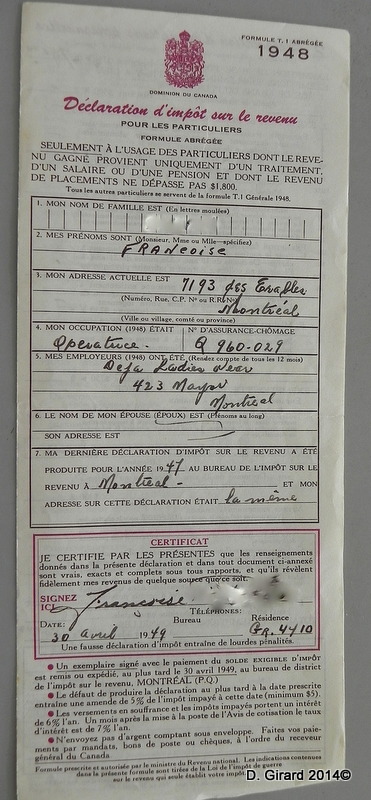 FORMULE T. 1 ABRÉGÉE
1948
DOMINION DU CANADA
Déclaration d'impôt sur le revenu
POUR LES PARTICULIERS
FORMULE ABRÉGÉE
SEULEMENT À L'USAGE DES PARTICULIERS DONT LE REVE-
NU GAGNÉ PROVIENT UNIQUEMENT D'UN TRAITEMENT,
D'UN SALAIRE OU D'UNE PENSION ET DONT LE REVENU
DE PLACEMENTS NE DÉPASSE PAS $1,800.
Tous les autres particuliers se servent de la formule T.1 Générale 1948.
1. MON NOM DE FAMILLE EST (En lettres moulées)
2. MES PRÉNOMS SONT (Monsieur, Mme ou Mlle—spécifiez)
FRANÇOISE
3. MON ADRESSE ACTUELLE EST 7193 des Erables
(Numéro, Rue, C.P. No ou R.R. No)
Montréal
(Ville ou village, comté ou province)
4. MON OCCUPATION (1948) ÉTAIT No D'ASSURANCE-CHÔMAGE
Opératrice. Q 960-029
5. MES EMPLOYEURS (1948) ONT ÉTÉ (Rendez compte de tous les 12 mois)
Deja Ladies Wear
423 Mayor
Montreal
6. LE NOM DE MON ÉPOUSE (ÉPOUX) EST (Prénoms au long)
SON ADRESSE EST
7. MA DERNIÈRE DÉCLARATION D'IMPÔT SUR LE REVENU A ÉTÉ
PRODUITE POUR L'ANNÉE 1947 AU BUREAU DE L'IMPÔT SUR LE
REVENU À Montréal - ET MON
ADRESSE SUR CETTE DÉCLARATION ÉTAIT la même
CERTIFICAT
JE CERTIFIE PAR LES PRÉSENTES que les renseignements
donnés dans la présente déclaration et dans tout document ci-annexé
sont vrais, exacts et complets sous tous rapports, et qu'ils révèlent
fidèlement mes revenus de quelque source que ce soit.
SIGNEZ
ICI Françoise
TÉLÉPHONES:
DATE: Bureau Résidence
30 avril 1949 GR. 4410
Une fausse déclaration d'impôt entraîne de lourdes pénalités.
● Un exemplaire signé avec le paiement du SOLDE EXIGIBLE D'IMPÔT
est remis ou expédié, au plus tard le 30 avril 1949, au bureau de district
de l'impôt sur le revenu, MONTRÉAL (P.Q.)
● Le défaut de produire la déclaration au plus tard à la date prescrite
entraîne une amende de 5% de l'impôt impayé à cette date (minimum $5).
● Les versements en souffrance et les impôts impayés portent un intérêt
de 6% l'an. Un mois après la mise à la poste de l'Avis de cotisation le taux
d'intérêt est de 7% l'an.
● N'envoyez pas d'argent comptant sous enveloppe. Faites vos paie-
ments par mandats, bons de poste ou chèques, à l'ordre du receveur
général du Canada
Formule prescrite et autorisée par le ministre du Revenu national. Les indications contenues
dans la présente formule sont tirées de la Loi de l'impôt de guerre
sur le revenu qui seule établit votre impôt
D. Girard 2014©